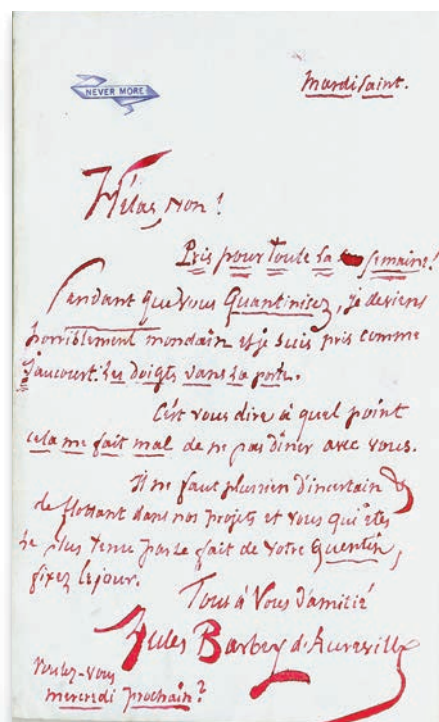 NEVER MORE
Mardi Saint.
Hélas, non!
Pris pour toute la semaine!
Pendant que vous Quantinisez, je deviens
horriblement mondain et je suis pris comme
Jaucourt. les doigts dans la porte.
C'est vous dire à quel point
cela me fait mal de ne pas dîner avec vous.
Il ne faut plus rien d'incertain &
de flottant dans nos projets et vous qui êtes
le plus tenu par le fait de votre Quentin,
fixez le jour.
Tout à Vous d'amitié
Jules Barbey d'Aurevilly
voulez-vous
mercredi prochain?